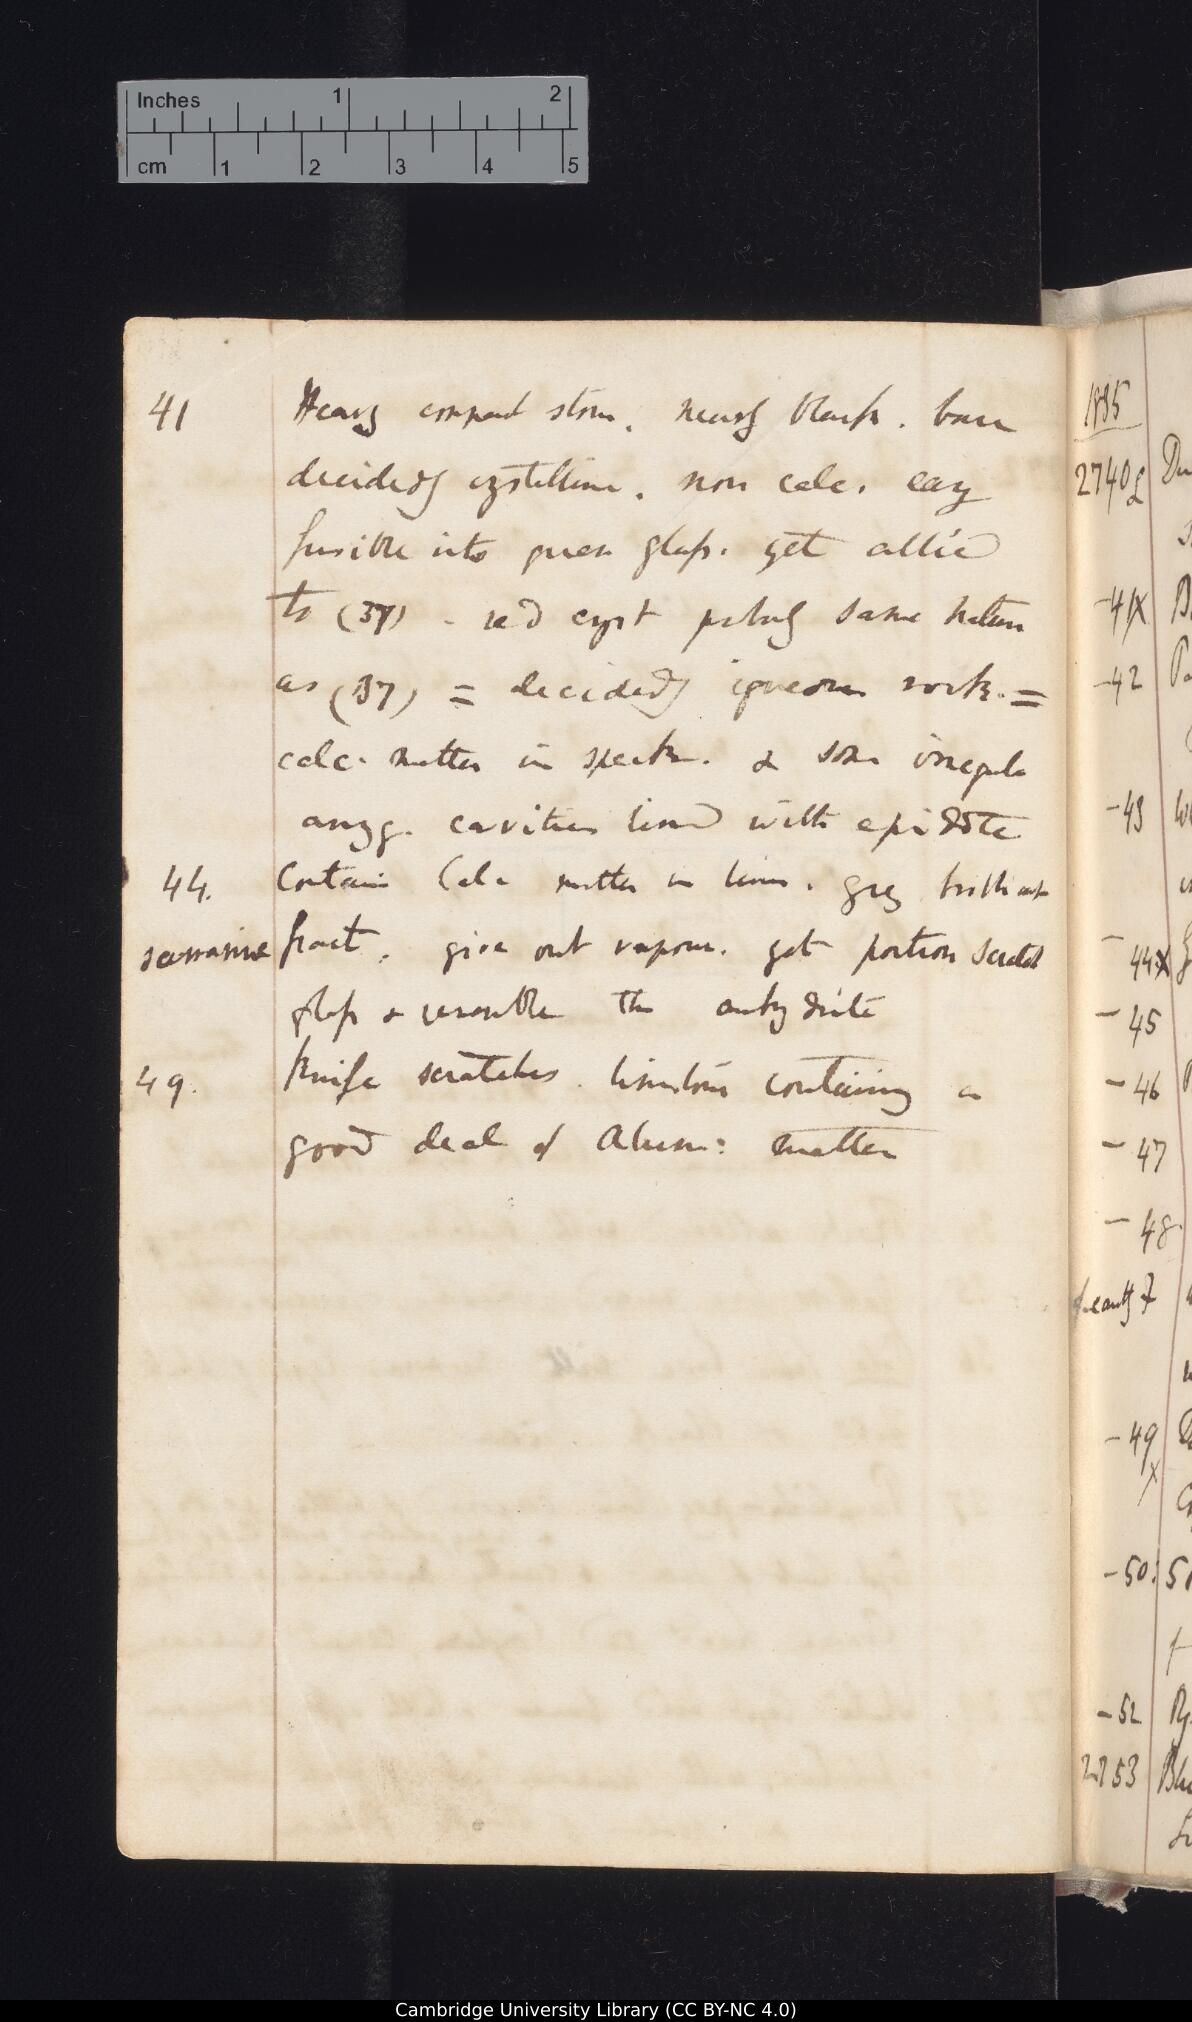 Inches 1 2
cm 1 2 3 4 5
41 Heavy compact stone. nearly black. base
decidedly crystalline. non calc. easy
fusible into green glass. yet allied
to (37) - red cryst probably same nature
as (37) = decidedly igneous rock. =
calc. matter in specks. & some irregular
amyg. cavities lined with epidote
44. Contain Calc matter in lines. grey brilliant
fract. give out vapour. yet portion scratch
glass & resemble the anhydrite
49. Knife scratches. limestone containing a
good deal of Alum: matter
1835
2740
-41X
-42
-43
-44X
-45
-46
-47
-48
-49
X
-50:
-52
2753
Cambridge University Library (CC BY-NC 4.0)